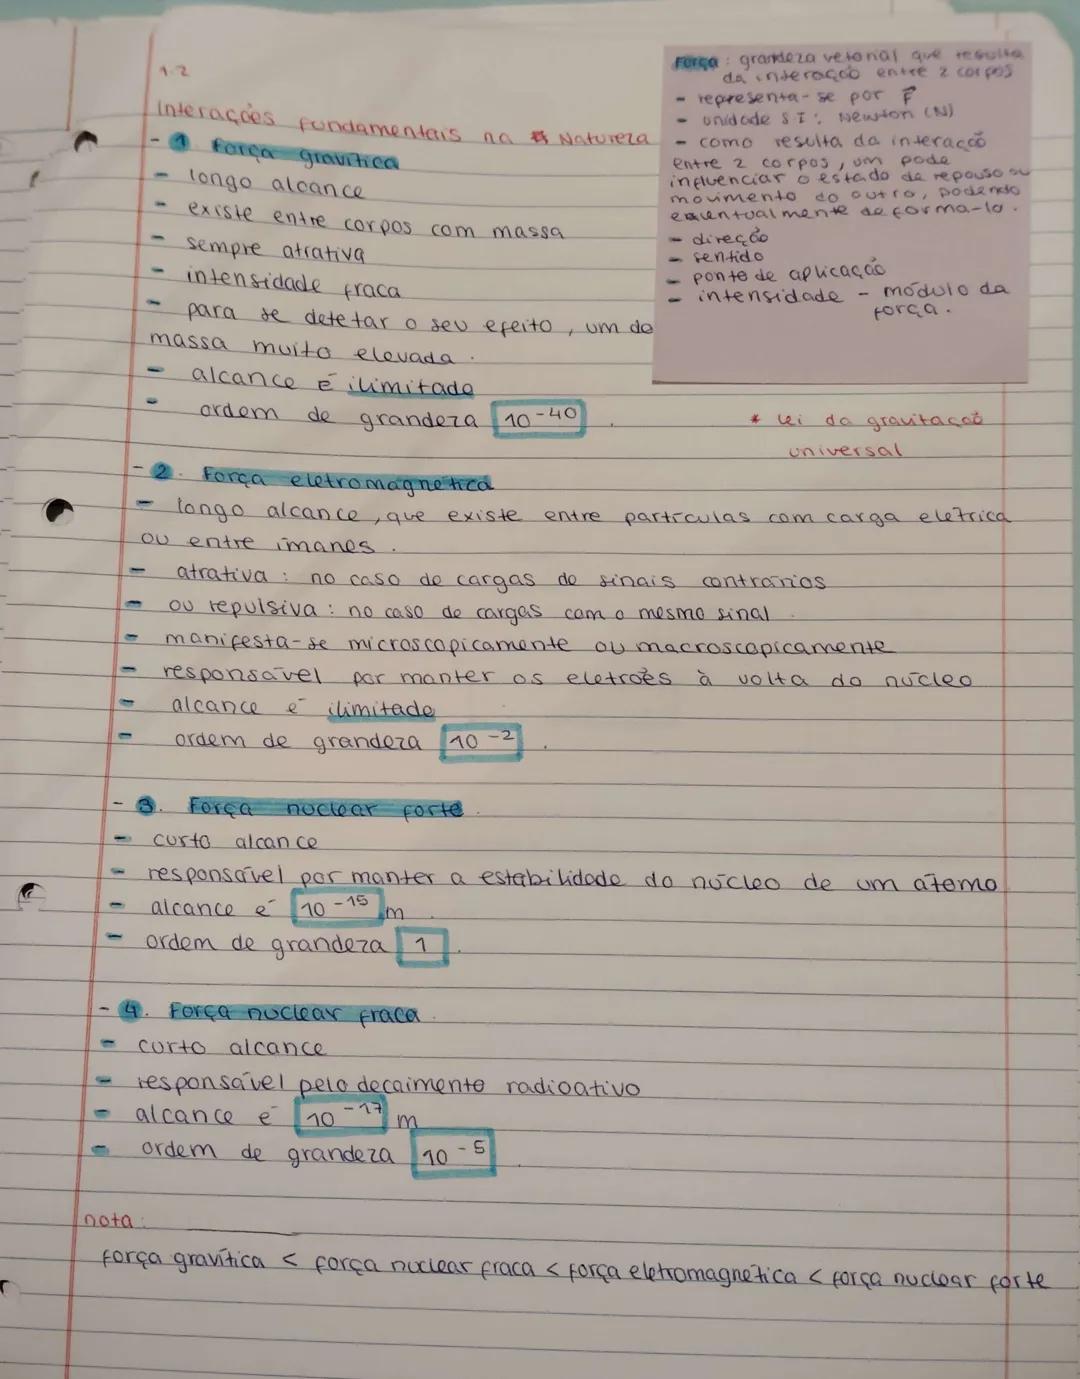 1.2
Interações fundamentais na Natureza
- 1 Força gravítica
- longo alcance
- existe entre corpos com massa
- sempre atrativa
- intensidade fraca
- para se detetar o seu efeito, um do
massa muito elevada.
- alcance é ilimitado
- ordem de grandeza 10^-40.
Força: grandeza vetorial que resulta
da interação entre 2 corpos
- representa-se por F⃗
- unidade S.I: Newton (N)
- como resulta da interação
entre 2 corpos, um pode
influenciar o estado de repouso ou
movimento do outro, podendo
eventualmente deforma-lo.
- direção
- sentido
- ponto de aplicação
- intensidade - módulo da
força.
* lei da gravitação
universal
- 2. Força eletromagnética
- longo alcance, que existe entre partículas com carga elétrica
ou entre imanes.
- atrativa: no caso de cargas de sinais contrários
- ou repulsiva: no caso de cargas com o mesmo sinal.
- manifesta-se microscopicamente ou macroscopicamente
- responsável por manter os eletrões à volta do núcleo
- alcance é ilimitado
- ordem de grandeza 10^-2.
- 3. Força nuclear forte.
- curto alcance
- responsável por manter a estabilidade do núcleo de um átomo
- alcance é 10^-15 m.
- ordem de grandeza 1.
- 4. Força nuclear fraca.
- curto alcance
- responsável pelo decaimento radioativo
- alcance é 10^-17 m
- ordem de grandeza 10^-5.
nota:
força gravítica < força nuclear fraca < força eletromagnética < força nuclear forte